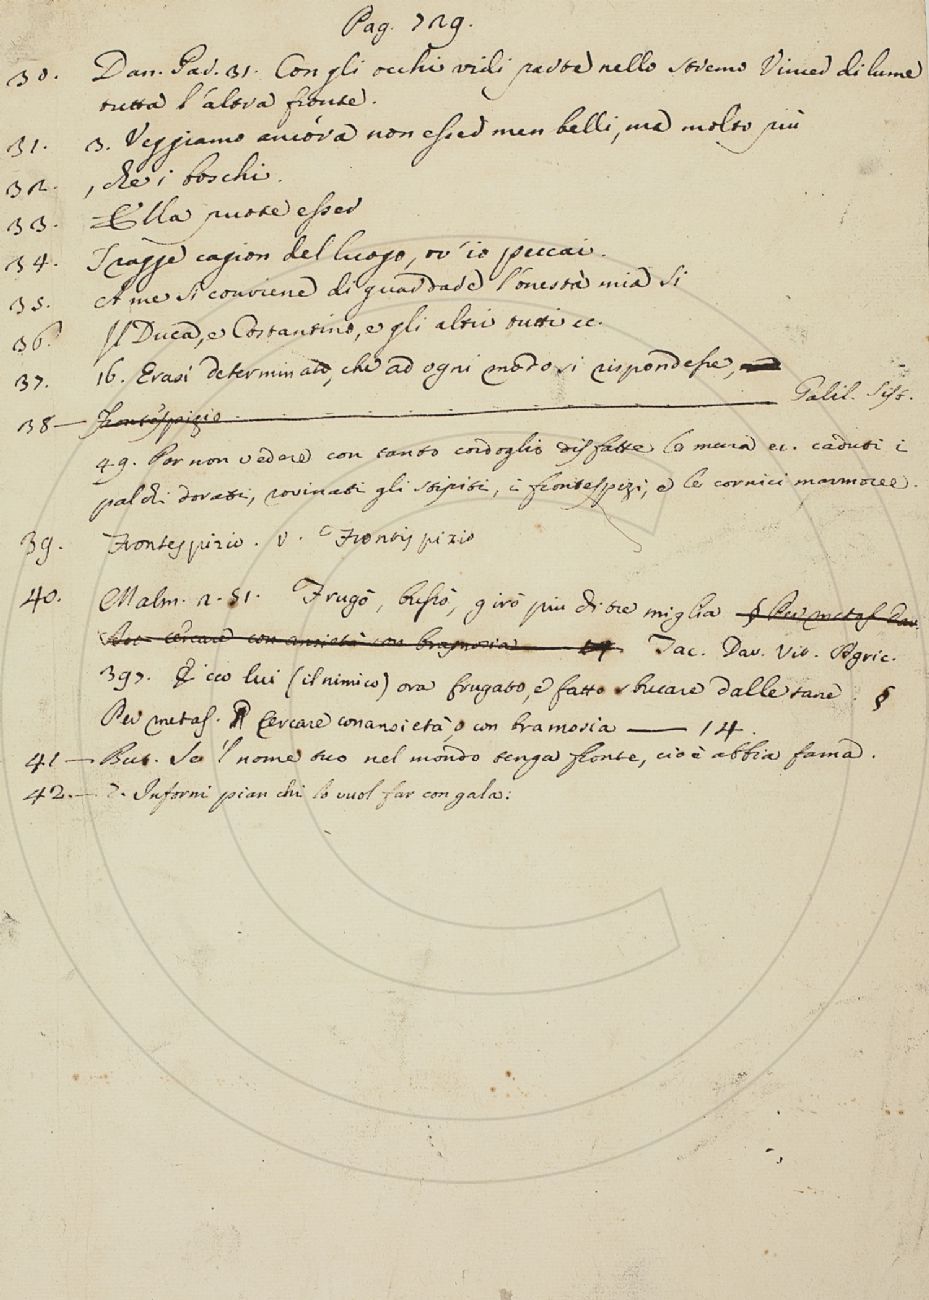 Pag. 729.
30. Dan. Par. 31. Con gli occhi vidi parte nello stremo Vincer di lume
tutta l'altra fronte.
31. 3. Veggiamo ancóra non esser men belli, ma molto più
32. , che i boschi.
33. Ella puote esser
34. cagion del luogo, ov'io peccai.
35. A me si conviene di guardare l'onestà mia Si
36. Il Duca, e Costantino, e gli altri tutti ec.
37. 16. Erasi determinato, che ad ogni modo si rispondesse,
38— Frontespizio Galil. Sist.
49. Por non vedere con tanto cordoglio disfatte le mura ec. caduti i
palchi dorati, rovinati gli stipiti, i frontespizj, e le cornici marmoree.
39. Frontespizio. V. Frontispizio
40. Malm. 2. 51. Frugò, bussò, girò più di tre miglia § Per metaf. Dav.
cercare con ansietà con bramosia 14 Tac. Dav. Vit. Agric.
397. Ecco lui (il nimico) ora frugato, e fatto sbucare dalle tane. §
Per metaf. Cercare con ansietà, o con bramosia — 14.
41— But. Se 'l nome tuo nel mondo tenga fronte, cioè abbia fama.
42.— 7. Informi pian chi lo vuol far con gala: